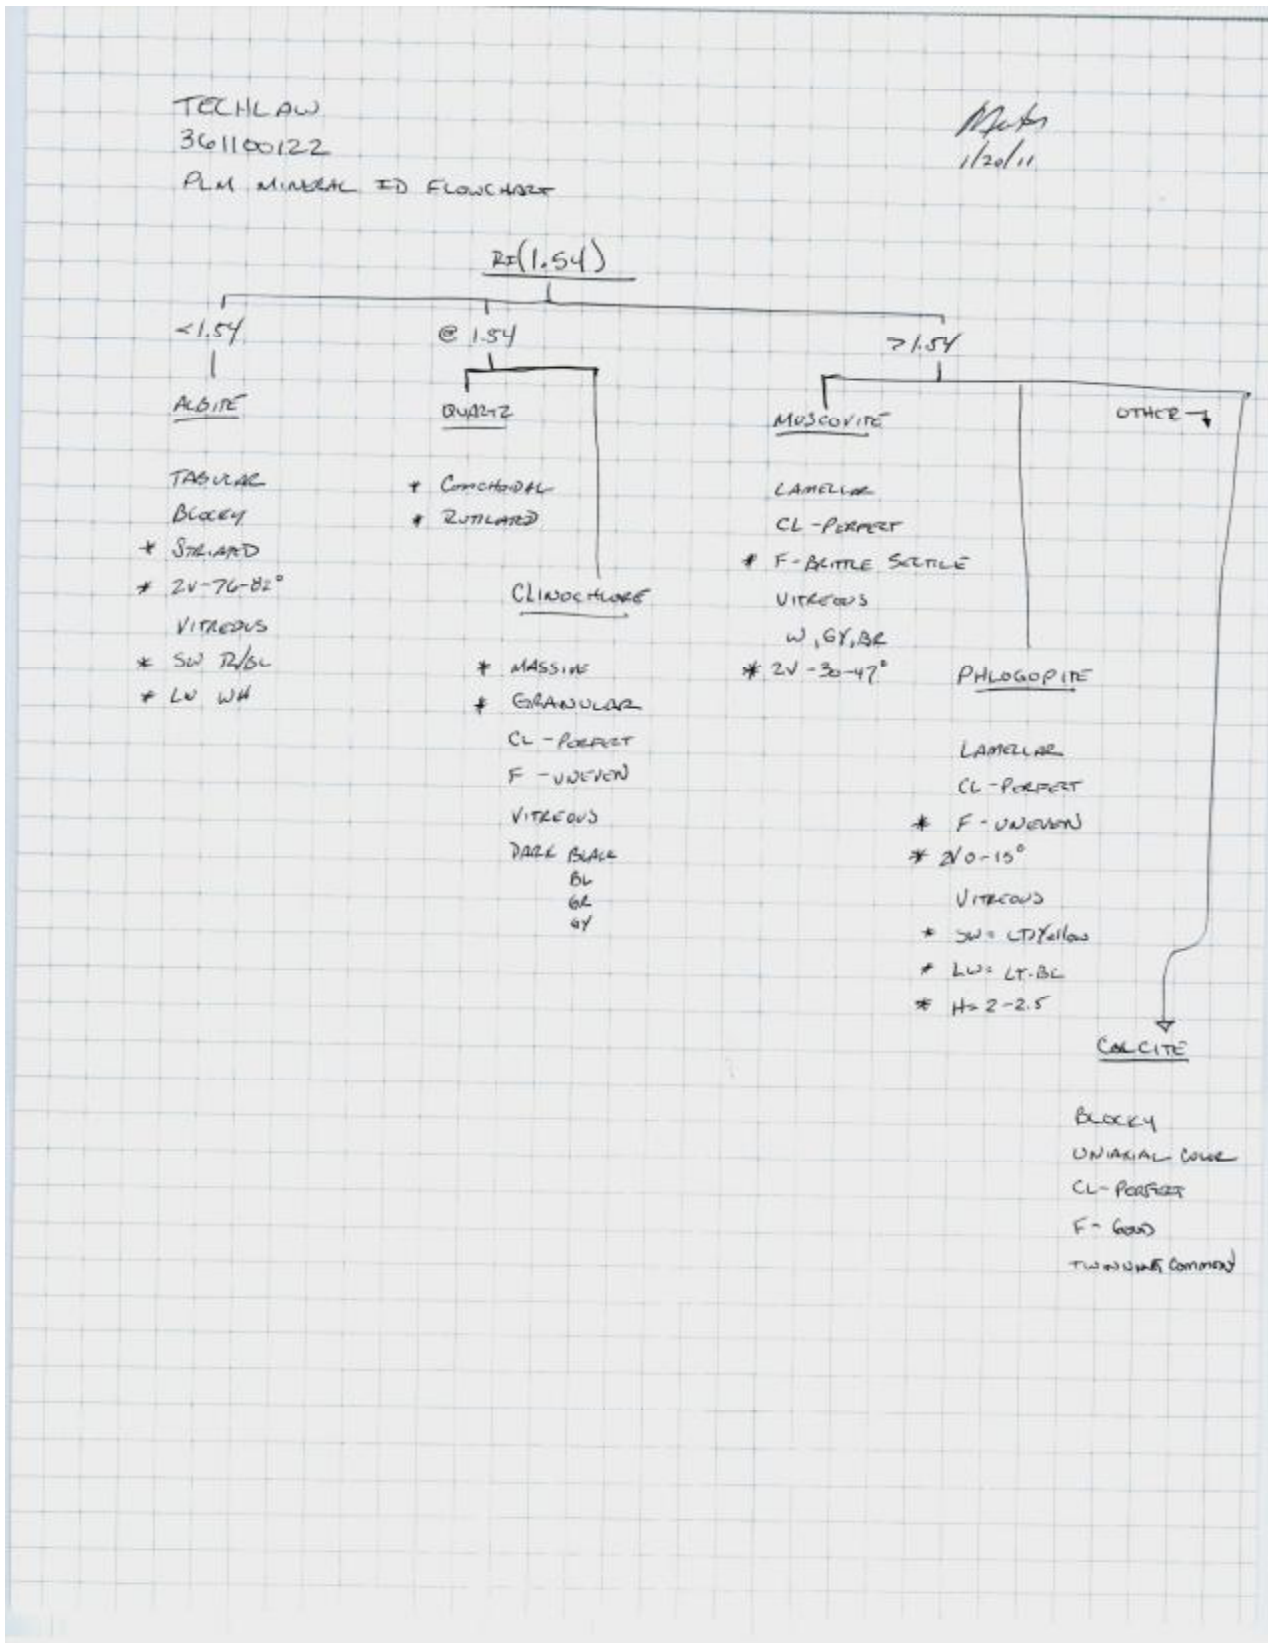 TECHLAW
361100122
PLM MINERAL ID FLOWCHART
1/20/11
RI(1.54)
<1.54
@ 1.54
>1.54
ALBITE
TABULAR
BLOCKY
* STRIATED
* 2V-76-82°
VITREOUS
* SW R/BL
* LW WH
QUARTZ
* CONCHOIDAL
* RUTILATED
CLINOCHLORE
* MASSIVE
* GRANULAR
CL - PERFECT
F - UNEVEN
VITREOUS
DARK BLACK
BL
GR
GY
MUSCOVITE
LAMELLAR
CL - PERFECT
* F - BRITTLE SECTILE
VITREOUS
W, GY, BR
* 2V - 30-47°
PHLOGOPITE
LAMELLAR
CL - PERFECT
* F - UNEVEN
* 2V 0-15°
VITREOUS
* SW = LT Yellow
* LW = LT-BL
* H= 2-2.5
OTHER
CALCITE
BLOCKY
UNIAXIAL COLOR
CL - PERFECT
F - GOOD
TWINNING COMMON